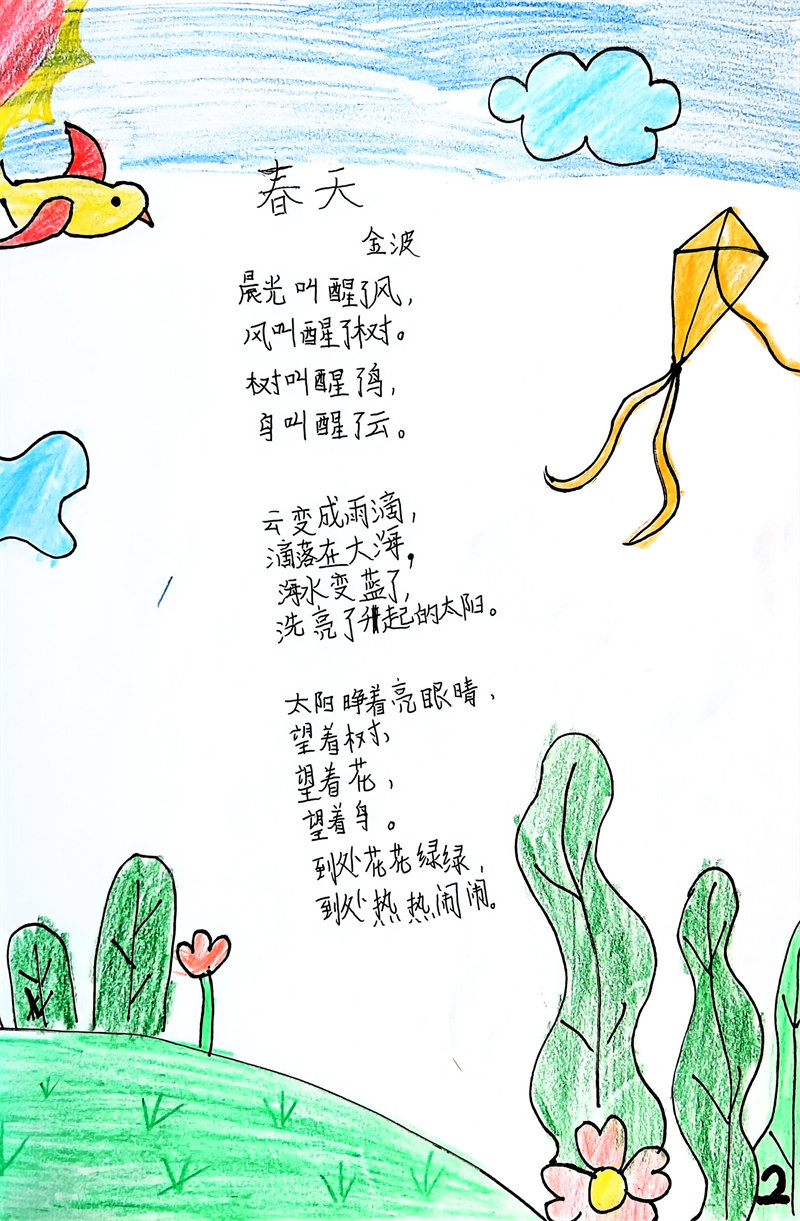 春天
金波
晨光叫醒了风，
风叫醒了树。
树叫醒鸟，
鸟叫醒了云。
云变成雨滴，
滴落在大海，
海水变蓝了，
洗亮了升起的太阳。
太阳睁着亮眼睛，
望着树，
望着花，
望着鸟。
到处花花绿绿，
到处热热闹闹。
2